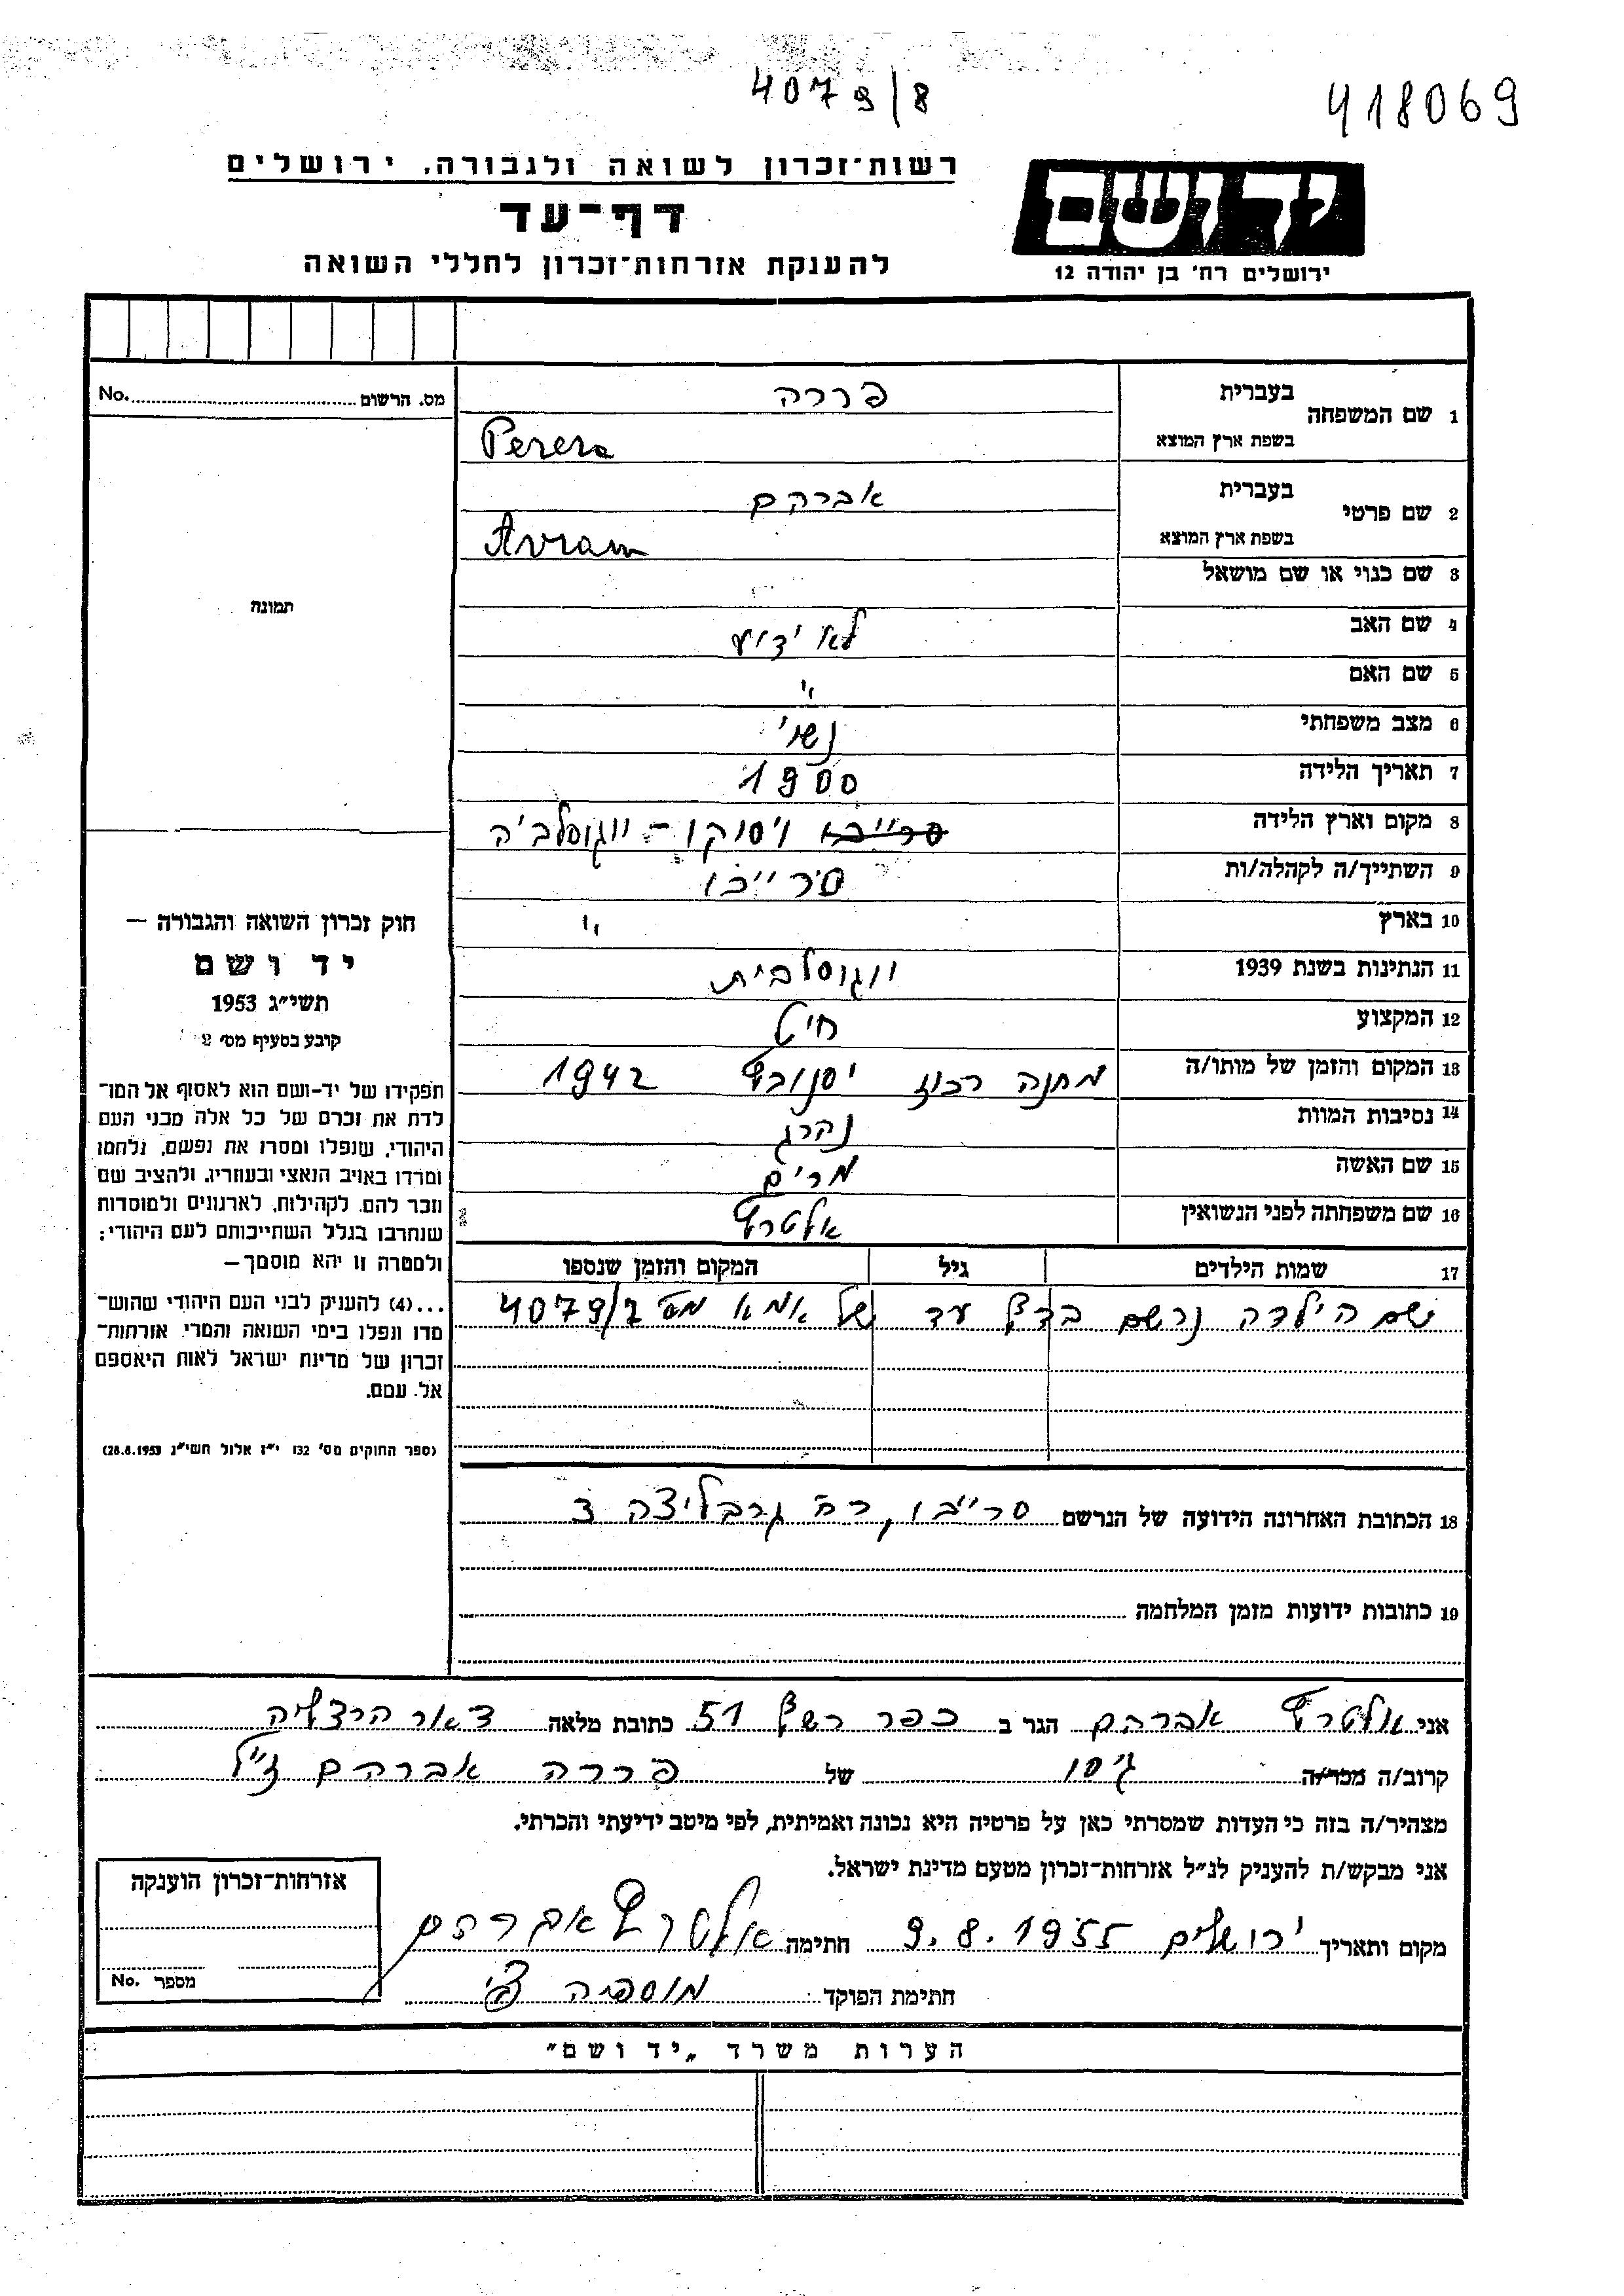 4079/8
418069
רשות־זכרון לשואה ולגבורה, ירושלים
דף־עד
להענקת אזרחות־זכרון לחללי השואה
יד ושם
ירושלים רח' בן יהודה 12
מס. הרשום No.
תמונה
1 שם המשפחה בעברית פררה
בשפת ארץ המוצא Perera
2 שם פרטי בעברית אברהם
בשפת ארץ המוצא Avram
3 שם כנוי או שם מושאל
4 שם האב לא ידוע
5 שם האם "
6 מצב משפחתי נשוי
7 תאריך הלידה 1900
8 מקום וארץ הלידה ויסוקו - יוגוסלביה
9 השתייך/ה לקהלה/ות סרייבו
10 בארץ "
11 הנתינות בשנת 1939 יוגוסלבית
12 המקצוע חיט
13 המקום והזמן של מותו/ה מחנה רכוז יסנובץ 1942
14 נסיבות המוות נהרג
15 שם האשה מרים
16 שם משפחתה לפני הנשואין אלטרץ
17 שמות הילדים גיל המקום והזמן שנספו
שם הילדה נרשם בדף עד של אמא מס 4079/7
18 הכתובת האחרונה הידועה של הנרשם סרייבו, רח' גרבליצה 3
19 כתובות ידועות מזמן המלחמה
חוק זכרון השואה והגבורה –
יד ושם
תשי״ג 1953
קובע בסעיף מס' 2
תפקידו של יד-ושם הוא לאסוף אל המו־
לדת את זכרם של כל אלה מבני העם
היהודי, שנפלו ומסרו את נפשם, נלחמו
ומרדו באויב הנאצי ובעוזריו, ולהציב שם
וזכר להם, לקהילות, לארגונים ולמוסדות
שנחרבו בגלל השתייכותם לעם היהודי;
ולמטרה זו יהא מוסמך –
...(4) להעניק לבני העם היהודי שהוש־
מדו ונפלו בימי השואה והמרי אזרחות־
זכרון של מדינת ישראל לאות היאספם
אל עמם.
(ספר החוקים מס' 132 י״ז אלול תשי״ג 28.8.1953)
אני אלטרץ אברהם הגר ב כפר רשף 51 כתובת מלאה דאר הרצליה
קרוב/ה מכר/ה גיסו של פררה אברהם ז"ל
מצהיר/ה בזה כי העדות שמסרתי כאן על פרטיה היא נכונה ואמיתית, לפי מיטב ידיעתי והכרתי.
אני מבקש/ת להעניק לנ״ל אזרחות־זכרון מטעם מדינת ישראל.
מקום ותאריך ירושלים 9.8.1955 חתימה אלטרץ אברהם
חתימת הפוקד:
אזרחות־זכרון הוענקה
מספר No.
הערות משרד „יד ושם״